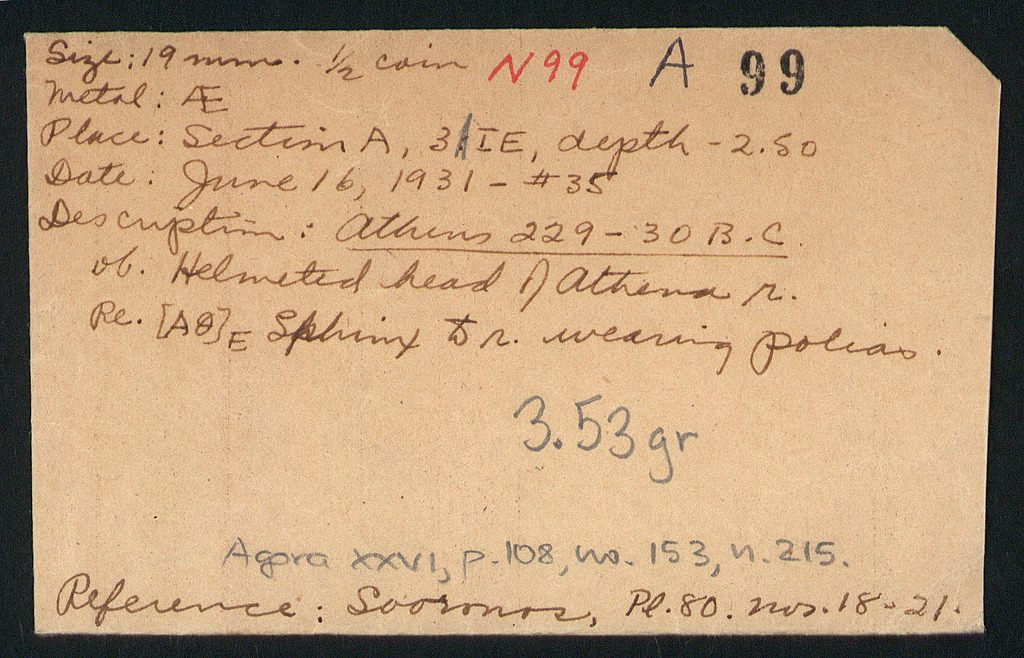 Size: 19 mm. ½ coin N99 A 99
Metal: Æ
Place: Section A, 3/IE, depth -2.50
Date: June 16, 1931 - #35
Description: Athens 229-30 B.C.
ob. Helmeted head of Athena r.
Re. [AΘ]E Sphinx to r. wearing polias.
3.53 gr
Agora XXVI, p. 108, no. 153, n. 215.
Reference: Svoronos, Pl. 80. nos. 18-21.